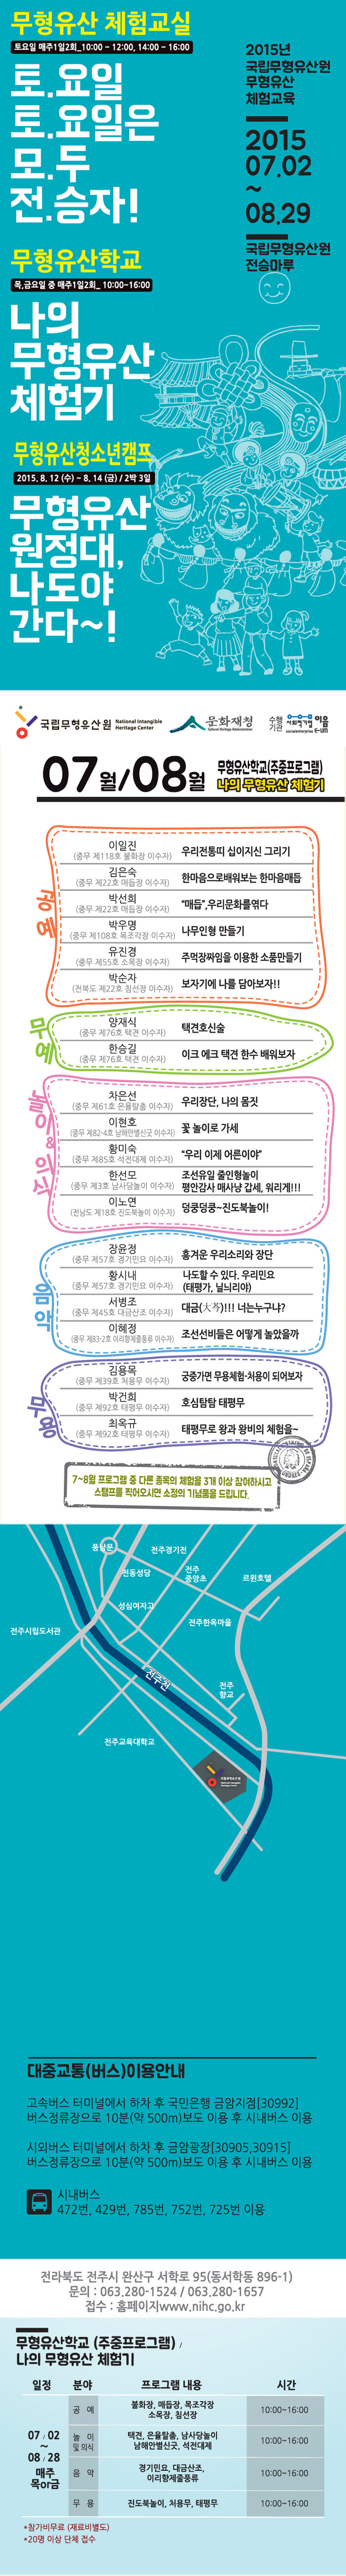 무형유산 체험교실
토요일 매주1일2회_10:00 ~ 12:00, 14:00 ~ 16:00
토.요일
토.요일은
모.두
전.승자!
2015년
국립무형유산원
무형유산
체험교육
2015
07.02
~
08.29
국립무형유산원
전승마루
무형유산학교
목,금요일 중 매주1일2회_ 10:00~16:00
나의
무형유산
체험기
무형유산청소년캠프
2015. 8. 12 (수) ~ 8, 14 (금) / 2박 3일
무형유산
원정대,
나도야
간다~!
국립무형유산원 National Intangible Heritage Center
문화재청 Cultural Heritage Administration
수행기관 사회적기업 이음
socialenterprise e-um
07월/08월
무형유산학교(주중프로그램)
나의 무형유산 체험기
공예
이일진
(중무 제118호 불화장 이수자)
우리전통띠 십이지신 그리기
김은숙
(중무 제22호 매듭장 이수자)
한마음으로배워보는 한마음매듭
박선희
(중무 제22호 매듭장 이수자)
"매듭",우리문화를엮다
박우명
(중무 제108호 목조각장 이수자)
나무인형 만들기
유진경
(중무 제55호 소목장 이수자)
주먹장짜임을 이용한 소품만들기
박순자
(전북도 제22호 침선장 이수자)
보자기에 나를 담아보자!!
무예
양재식
(중무 제76호 택견 이수자)
택견호신술
한승길
(중무 제76호 택견 이수자)
이크 에크 택견 한수 배워보자
놀이&의식
차은선
(중무 제61호 은율탈춤 이수자)
우리장단, 나의 몸짓
이현호
(중무 제82-4호 남해안별신굿 이수자)
꽃 놀이로 가세
황미숙
(중무 제85호 석전대제 이수자)
"우리 이제 어른이야"
한선모
(중무 제3호 남사당놀이 이수자)
조선유일 줄인형놀이
평안감사 매사냥 갑세, 워리게!!!
이노연
(전남도 제18호 진도북놀이 이수자)
덩쿵덩쿵~진도북놀이!
음악
장윤정
(중무 제57호 경기민요 이수자)
흥겨운 우리소리와 장단
황시내
(중무 제57호 경기민요 이수자)
나도할 수 있다. 우리민요
(태평가, 닐늬리야)
서병조
(중무 제45호 대금산조 이수자)
대금(大芩)!!! 너는누구냐?
이혜정
(중무 제83-2호 이리향제줄풍류 이수자)
조선선비들은 어떻게 놀았을까
무용
김용목
(중무 제39호 처용무 이수자)
궁중가면 무용체험-처용이 되어보자
박건희
(중무 제92호 태평무 이수자)
호심탐탐 태평무
최옥규
(중무 제92호 태평무 이수자)
태평무로 왕과 왕비의 체험을~
7~8월 프로그램 중 다른 종목의 체험을 3개 이상 참여하시고
스탬프를 찍어오시면 소정의 기념품을 드립니다.
풍남문
전주경기전
전동성당
전주
중앙초
르윈호텔
성심여자고
전주한옥마을
전주시립도서관
전주천
전주
향교
전주교육대학교
국립무형유산원
대중교통(버스)이용안내
고속버스 터미널에서 하차 후 국민은행 금암지점[30992]
버스정류장으로 10분(약 500m)보도 이용 후 시내버스 이용
시외버스 터미널에서 하차 후 금암광장[30905,30915]
버스정류장으로 10분(약 500m)보도 이용 후 시내버스 이용
시내버스
472번, 429번, 785번, 752번, 725번 이용
전라북도 전주시 완산구 서학로 95(동서학동 896-1)
문의 : 063,280-1524 / 063,280-1657
접수 : 홈페이지www.nihc.go.kr
무형유산학교 (주중프로그램) /
나의 무형유산 체험기
일정 분야 프로그램 내용 시간
07 / 02
~
08 / 28
매주
목or금
공 예
불화장, 매듭장, 목조각장
소목장, 침선장
10:00~16:00
놀 이
및 의식
택견, 은율탈춤, 남사당놀이
남해안별신굿, 석전대제
10:00~16:00
음 악
경기민요, 대금산조,
이리향제줄풍류
10:00~16:00
무 용
진도북놀이, 처용무, 태평무
10:00~16:00
*참가비무료 (재료비별도)
*20명 이상 단체 접수